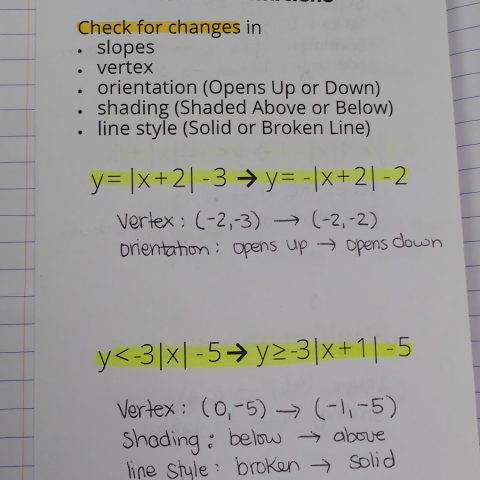 Check for changes in
• slopes
• vertex
• orientation (Opens Up or Down)
• shading (Shaded Above or Below)
• line style (Solid or Broken Line)
y= |x+2| -3 → y= -|x+2| -2
Vertex : (-2,-3) → (-2,-2)
orientation : opens up → opens down
y<-3|x| -5 → y≥-3|x+1| -5
Vertex : (0,-5) → (-1,-5)
Shading : below → above
line style : broken → solid